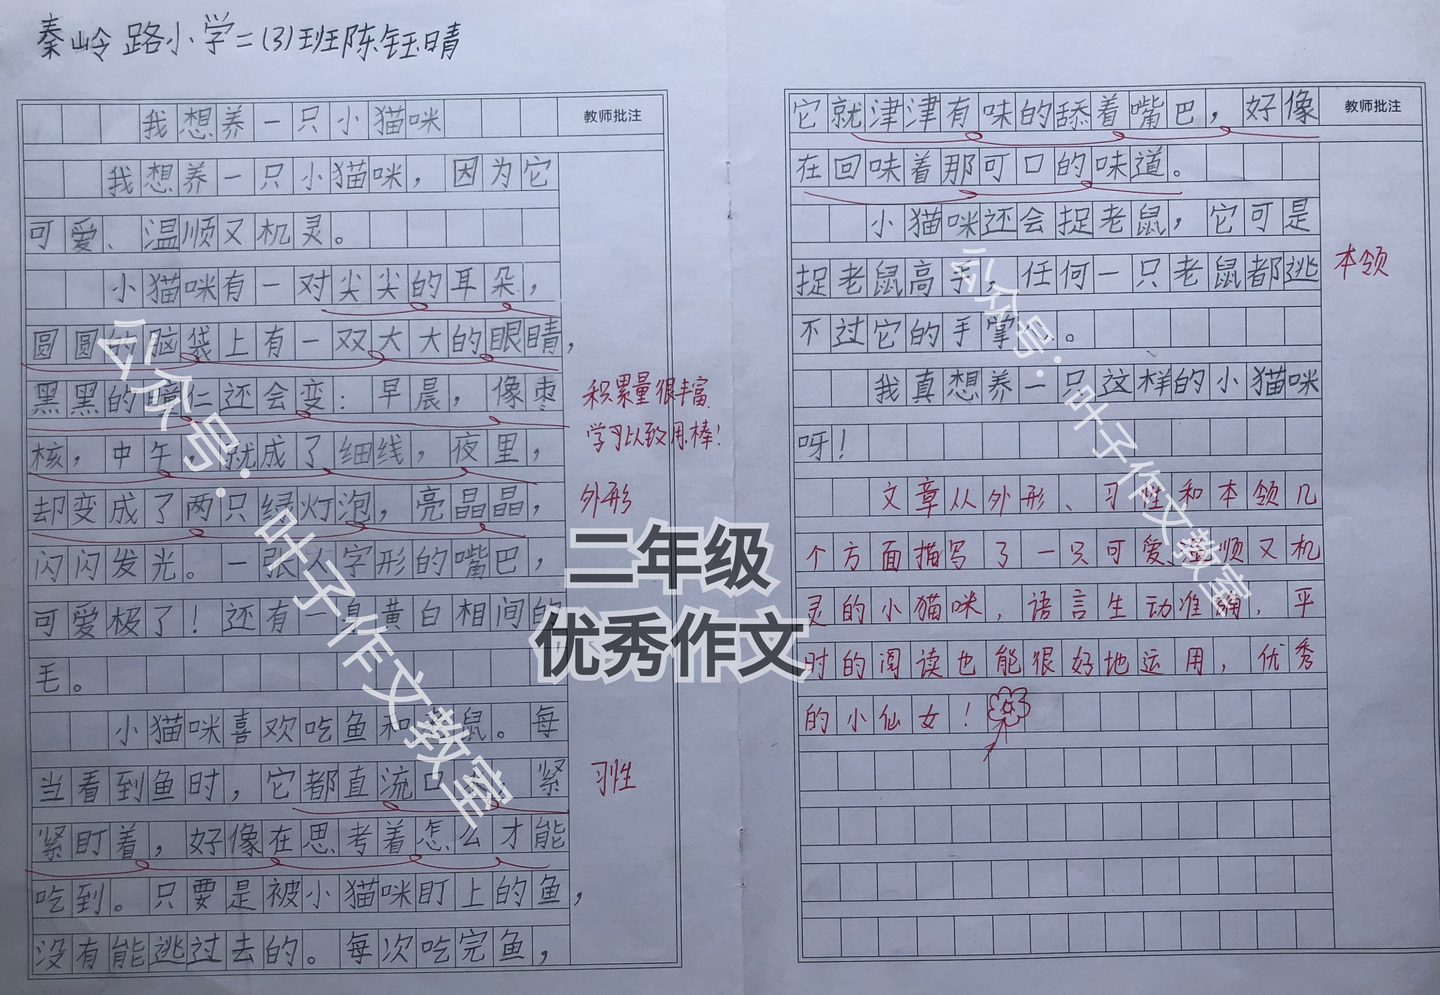 秦岭路小学二(3)班陈钰晴
我想养一只小猫咪
教师批注
我想养一只小猫咪，因为它
可爱、温顺又机灵。
小猫咪有一对尖尖的耳朵，
圆圆的脑袋上有一双大大的眼睛，
黑黑的瞳仁还会变：早晨，像枣
核，中午，就成了细线，夜里，
却变成了两只绿灯泡，亮晶晶，
闪闪发光。一张人字形的嘴巴，
可爱极了！还有一身黄白相间的
毛。
小猫咪喜欢吃鱼和老鼠。每
当看到鱼时，它都直流口水，紧
紧盯着，好像在思考着怎么才能
吃到。只要是被小猫咪盯上的鱼，
没有能逃过去的。每次吃完鱼，
积累量很丰富
学习以致用棒！
外形
习性
教师批注
它就津津有味的舔着嘴巴，好像
在回味着那可口的味道。
小猫咪还会捉老鼠，它可是
捉老鼠高手，任何一只老鼠都逃
不过它的手掌心。
我真想养一只这样的小猫咪
呀！
本领
文章从外形、习性和本领几
个方面描写了一只可爱、温顺又机
灵的小猫咪，语言生动准确，平
时的阅读也能很好地运用，优秀
的小仙女！
二年级
优秀作文
公众号：叶子作文教室
公众号：叶子作文教室